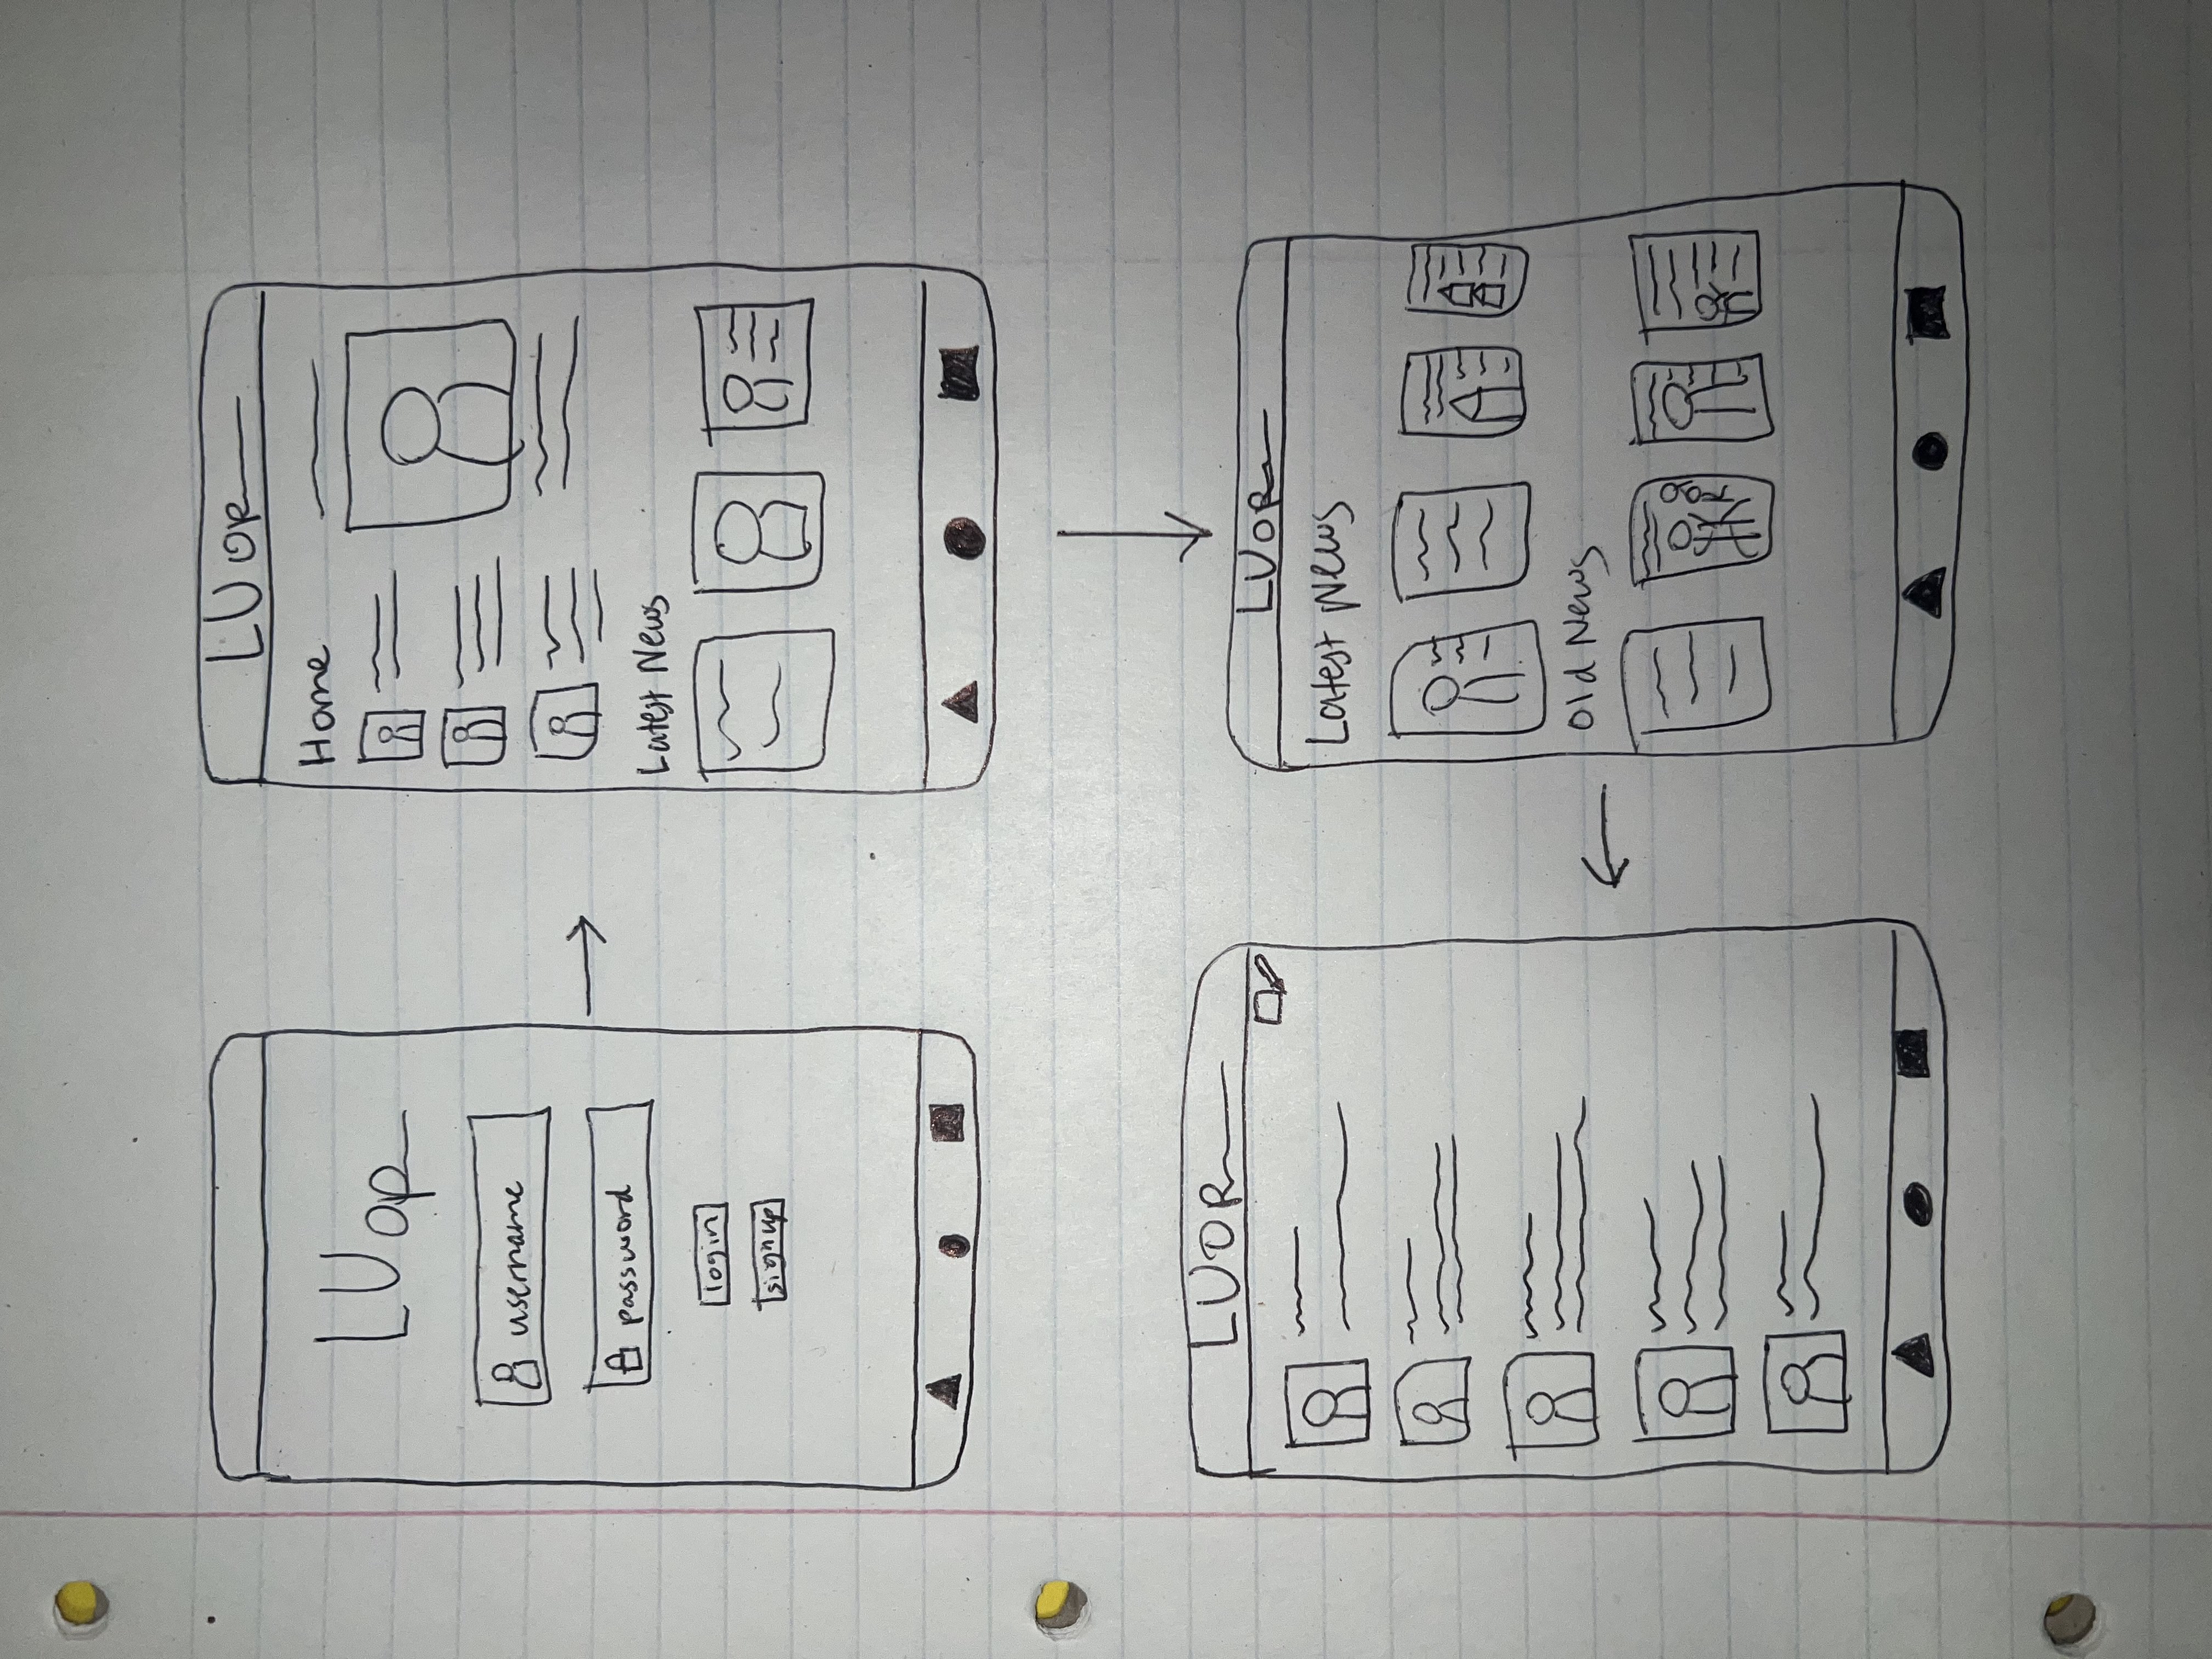 LUOR
username
password
login
signup
LUOR
Home
Latest News
LUOR
Latest News
Old News
LUOR